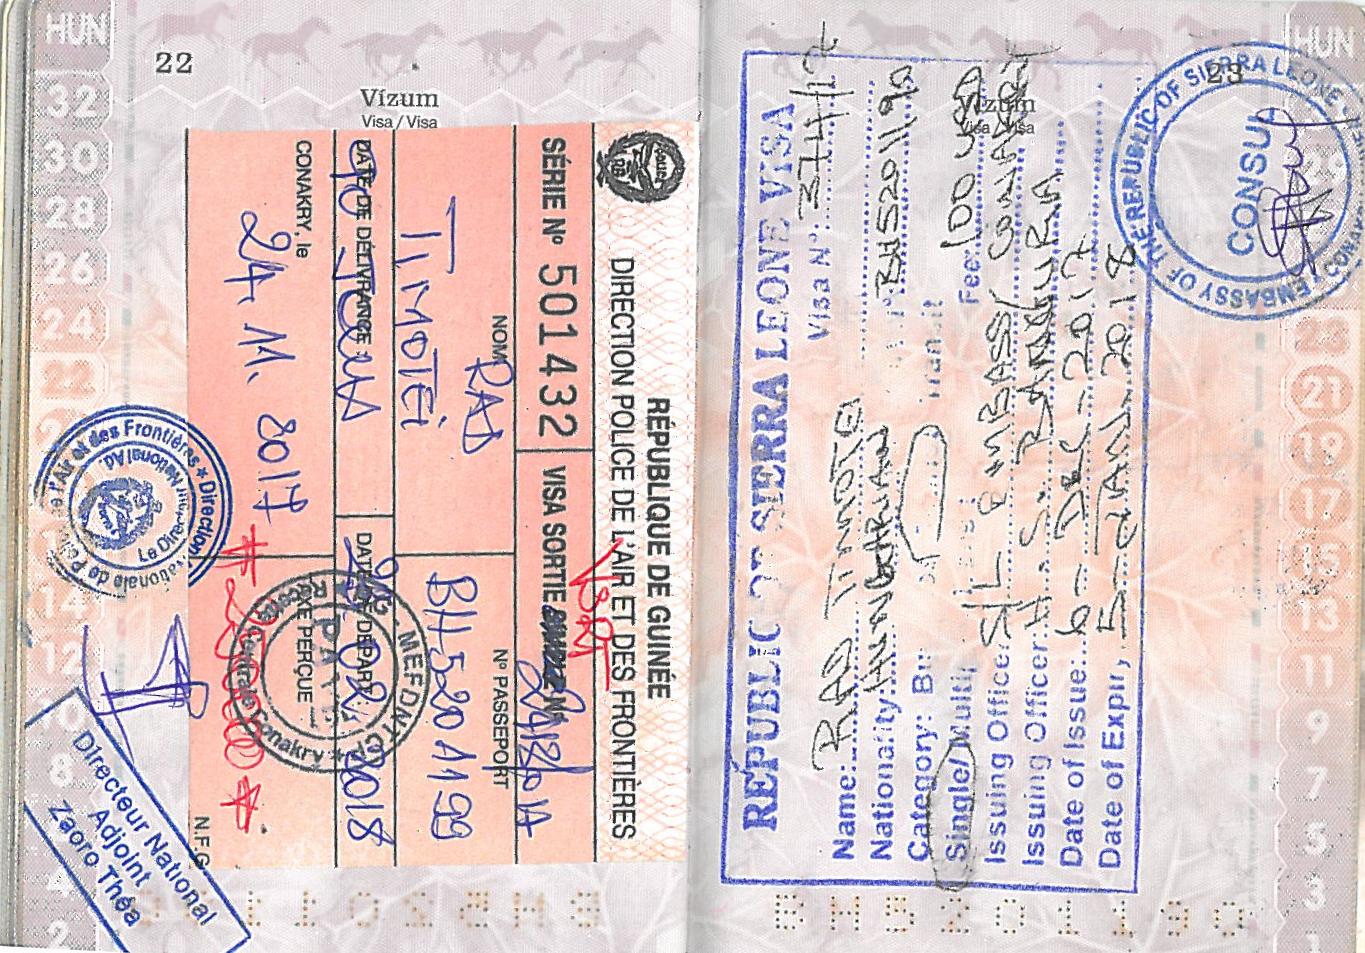 HUN
22
Vízum
Visa/Visa
RÉPUBLIQUE DE GUINÉE
DIRECTION POLICE DE L'AIR ET DES FRONTIÈRES
SÉRIE Nº 501432
VISA SORTIE
NOM RAD
TIMOTEI
Nº PASSEPORT
BH5201199
DATE DE DÉLIVRANCE :
90 JOURS
DATE DE DÉPART
02 2018
CONAKRY, le
24. 11. 2017
TAXE PERÇUE
N.F.G
MEFDNT
Conakry
Direction Nationale de l'Air et des Frontières
Le Directeur National Ad.
Directeur National
Adjoint
Zaoro Théa
32
30
28
26
24
22
14
12
10
8
4
2
HUN
23
Vízum
Visa/Visa
REPUBLIC OF SIERRA LEONE VISA
Visa Nº: 3744/17
Name: RAD TIMOTEI
Nationality: HUNGARIAN BH5201190
Category: Transit
Single/Multi Fee: 100 USD
Issuing Office: SL EMBASSY CONAKRY
Issuing Officer: H. S. BANGURA
Date of Issue: 6-DEC-2017
Date of Expiry 5-JAN-2018
EMBASSY OF THE REPUBLIC OF SIERRA LEONE
CONAKRY
CONSUL
BH5201190
21
19
17
15
13
11
9
7
5
3
1